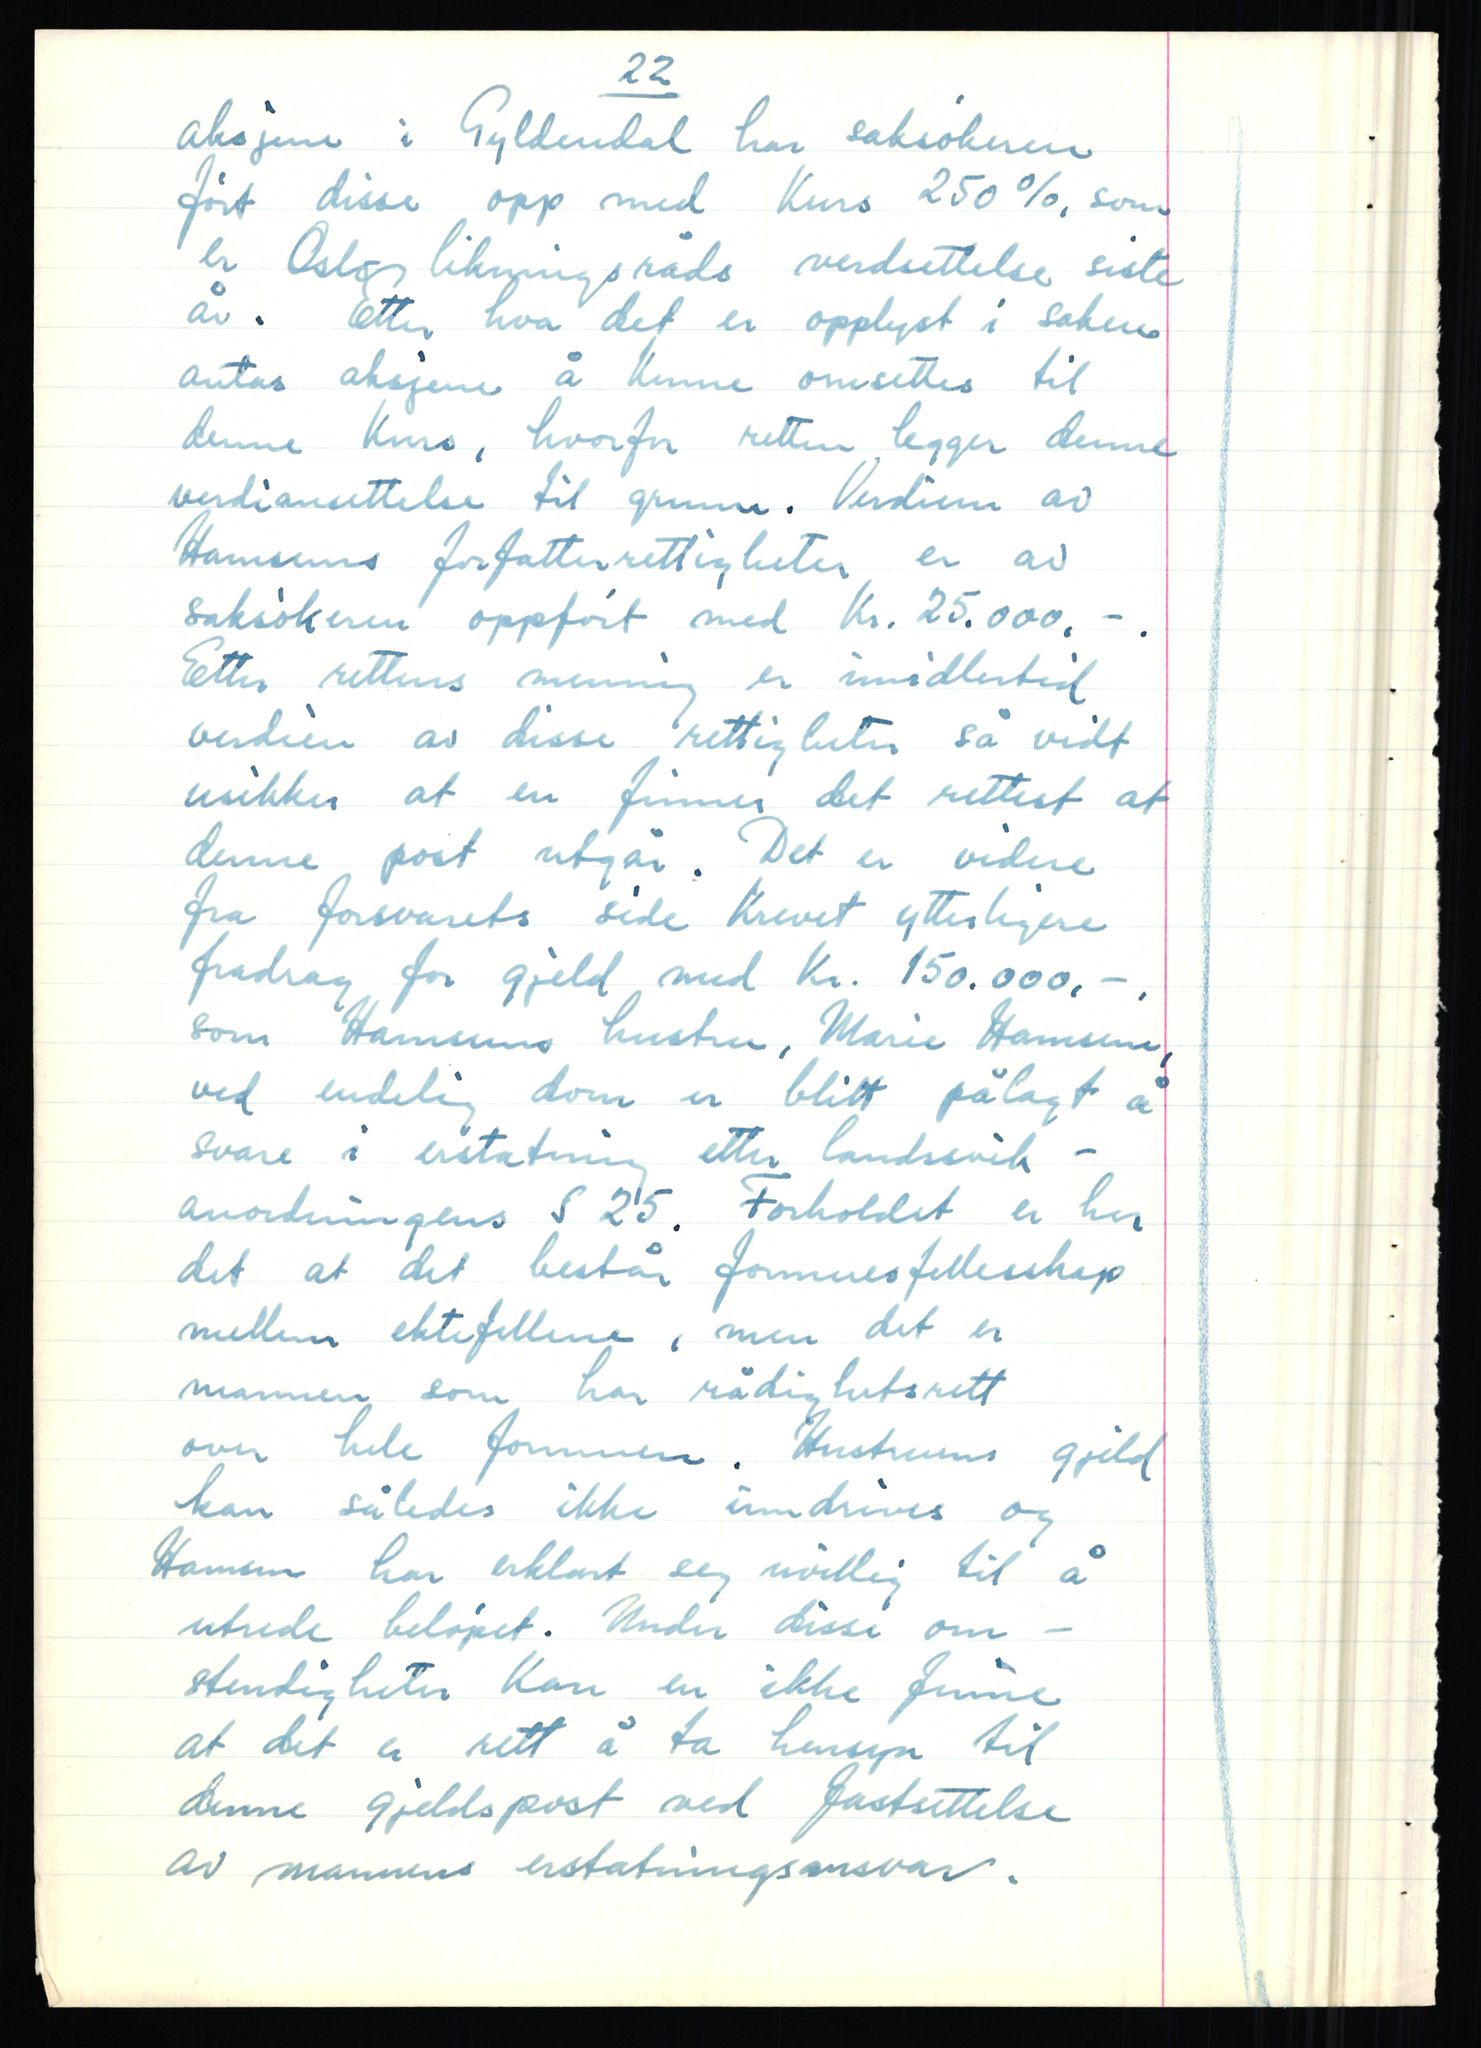 22
aksjene i Gyldendal har saksökeren
fört disse opp med Kurs 250 %, som
er Oslo likningsråds verdsettelse siste
år. Etter hva det er opplyst i saken
antas aksjene å kunne omsettes til
denne Kurs, hvorfor retten legger denne
verdiansettelse til grunn. Verdien av
Hamsuns forfatterrettigheter er av
saksökeren oppfört med Kr. 25.000.-.
Etter rettens mening er imidlertid
verdien av disse rettigheter så vidt
usikker at en finner det rettest at
denne post utgår. Det er videre
fra forsvarets side Krevet ytterligere
fradrag for gjeld med Kr. 150.000.-.
som Hamsuns hustru, Marie Hamsun,
ved endelig dom er blitt pålagt å
svare i erstatning etter landssvik-
anordningens § 25. Forholdet er her
det at det består formuesfellesskap
mellem ektefellene, men det er
mannen som har rådighetsrett
over hele formuen. Hustruens gjeld
kan således ikke inndrives og
Hamsun har erklært seg uvillig til å
utrede belöpet. Under disse om-
stendigheter Kan en ikke finne
at det er rett å ta hensyn til
denne gjeldspost ved fastsettelse
av mannens erstatningsansvar.